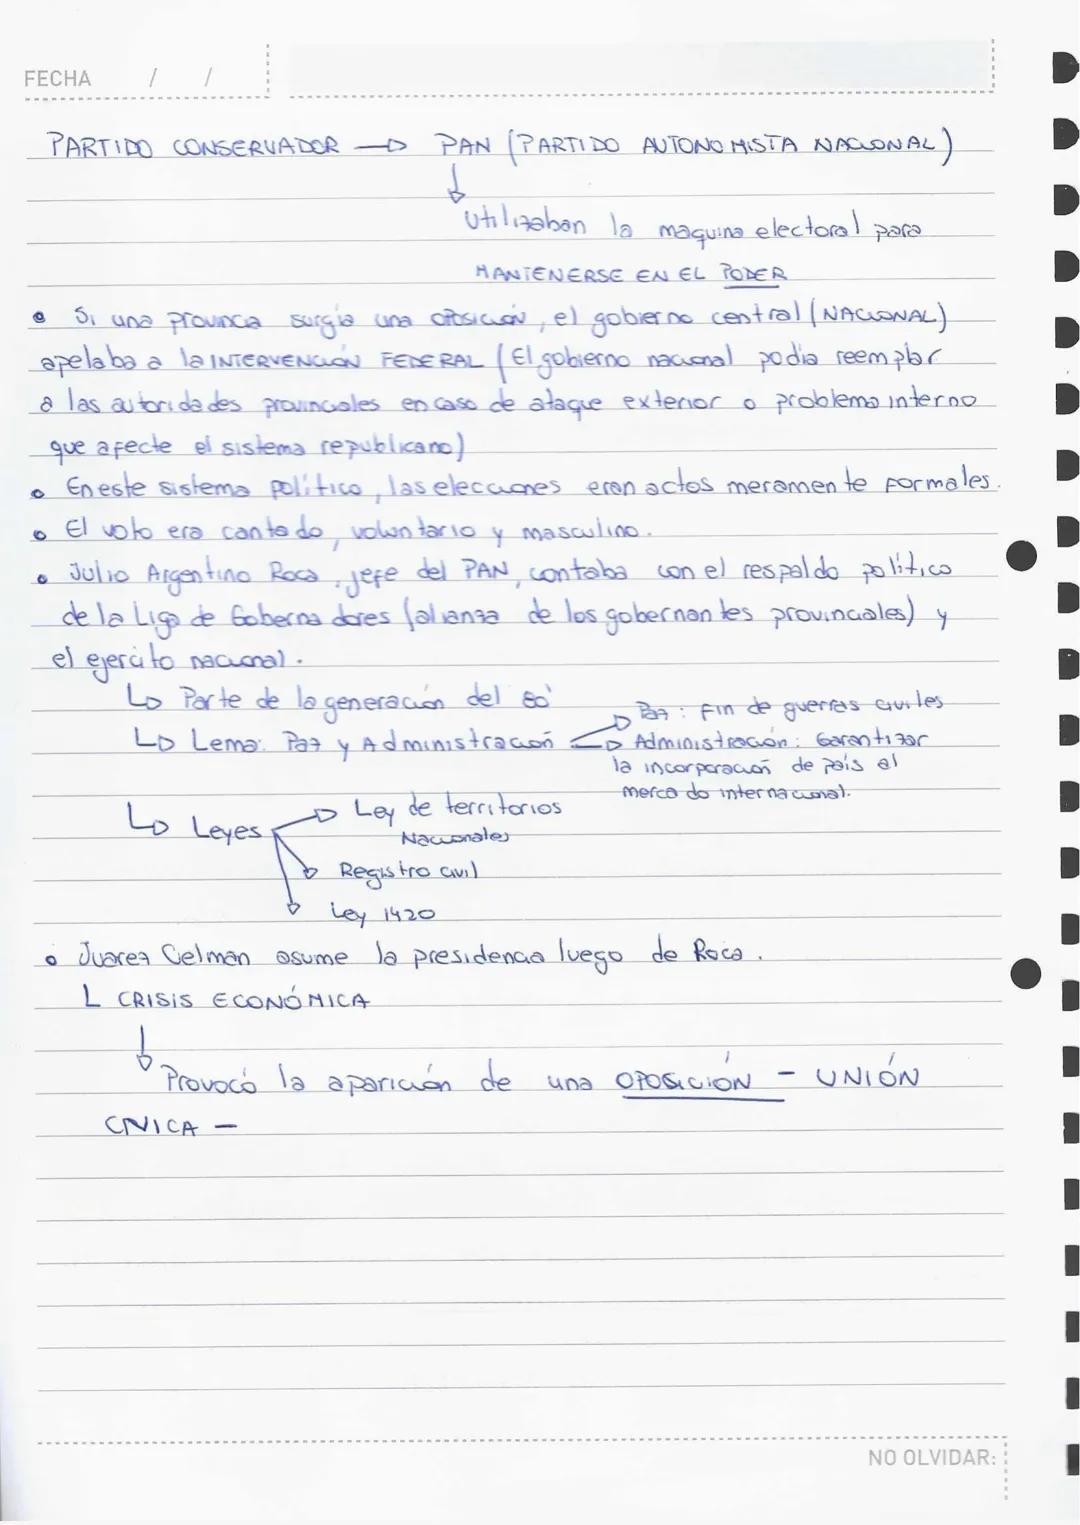 FECHA / /
PARTIDO CONSERVADOR → PAN (PARTIDO AUTONOMISTA NACIONAL)
↓
Utilizaban la maquina electoral para
MANTENERSE EN EL PODER
• Si una provincia surgía una oposición, el gobierno central (NACIONAL)
apelaba a la INTERVENCIÓN FEDERAL (El gobierno nacional podia reemplar
a las autoridades provinciales en caso de ataque exterior o problema interno
que afecte el sistema republicano)
• En este sistema político, las elecciones eran actos meramente formales.
• El voto era cantado, voluntario y masculino.
• Julio Argentino Roca, jefe del PAN, contaba con el respaldo político
de la Liga de Gobernadores (alianza de los gobernantes provinciales) y
el ejercito nacional.
↳ Parte de la generación del 80'
↳ Lema: Paz y Administración
→ Paz: fin de guerras civiles
→ Administración: Garantizar
la incorporación de país al
mercado internacional.
↳ Leyes → Ley de territorios
Nacionales
→ Registro civil
→ Ley 1420
• Juarez Celman asume la presidencia luego de Roca.
L CRISIS ECONÓMICA
↓
Provocó la aparición de una OPOSICIÓN - UNIÓN
CIVICA -
NO OLVIDAR: